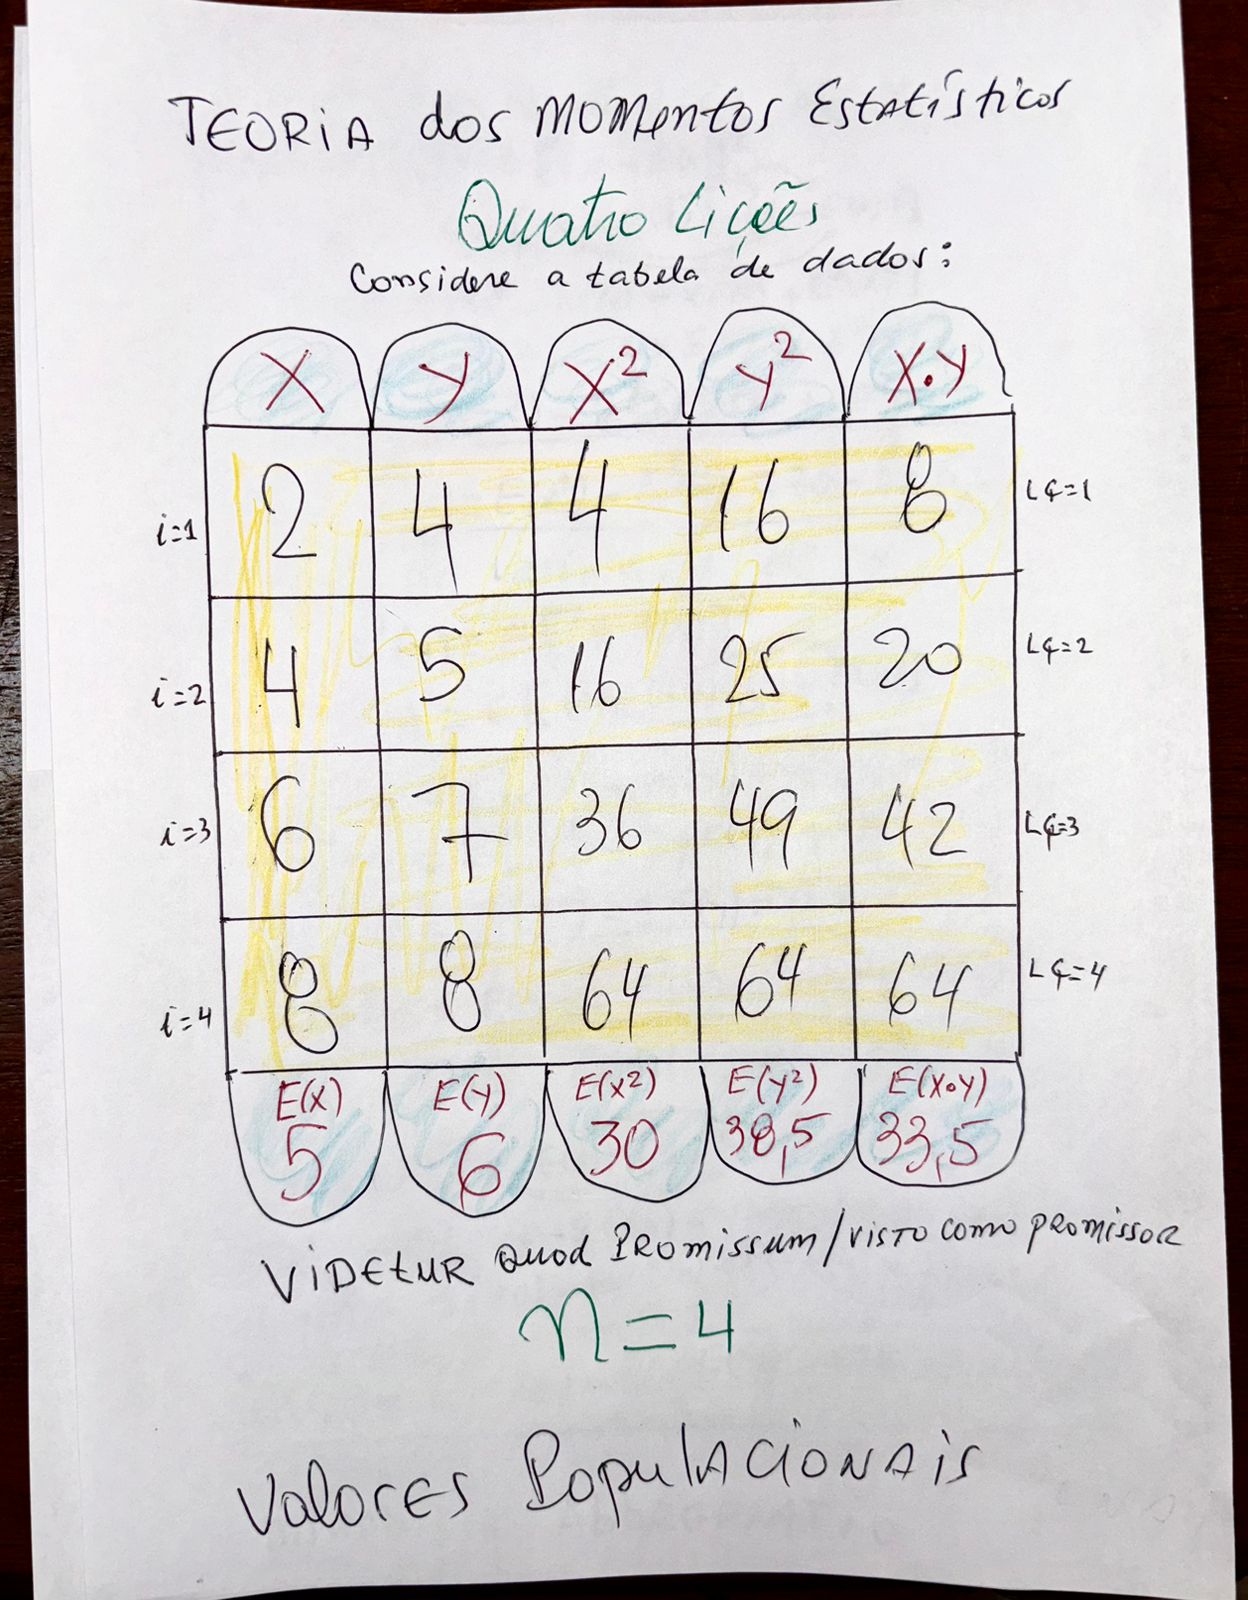 TEORIA dos MOMENTOS Estatísticos
Quatro Lições
Considere a tabela de dados:
X Y X² Y² X•Y
i=1 2 4 4 16 8 LÇ=1
i=2 4 5 16 25 20 LÇ=2
i=3 6 7 36 49 42 LÇ=3
i=4 8 8 64 64 64 LÇ=4
E(X) E(Y) E(X²) E(Y²) E(X•Y)
5 6 30 38,5 33,5
VIDETUR QUOD PROMISSUM/VISTO COMO PROMISSOR
n=4
Valores Populacionais